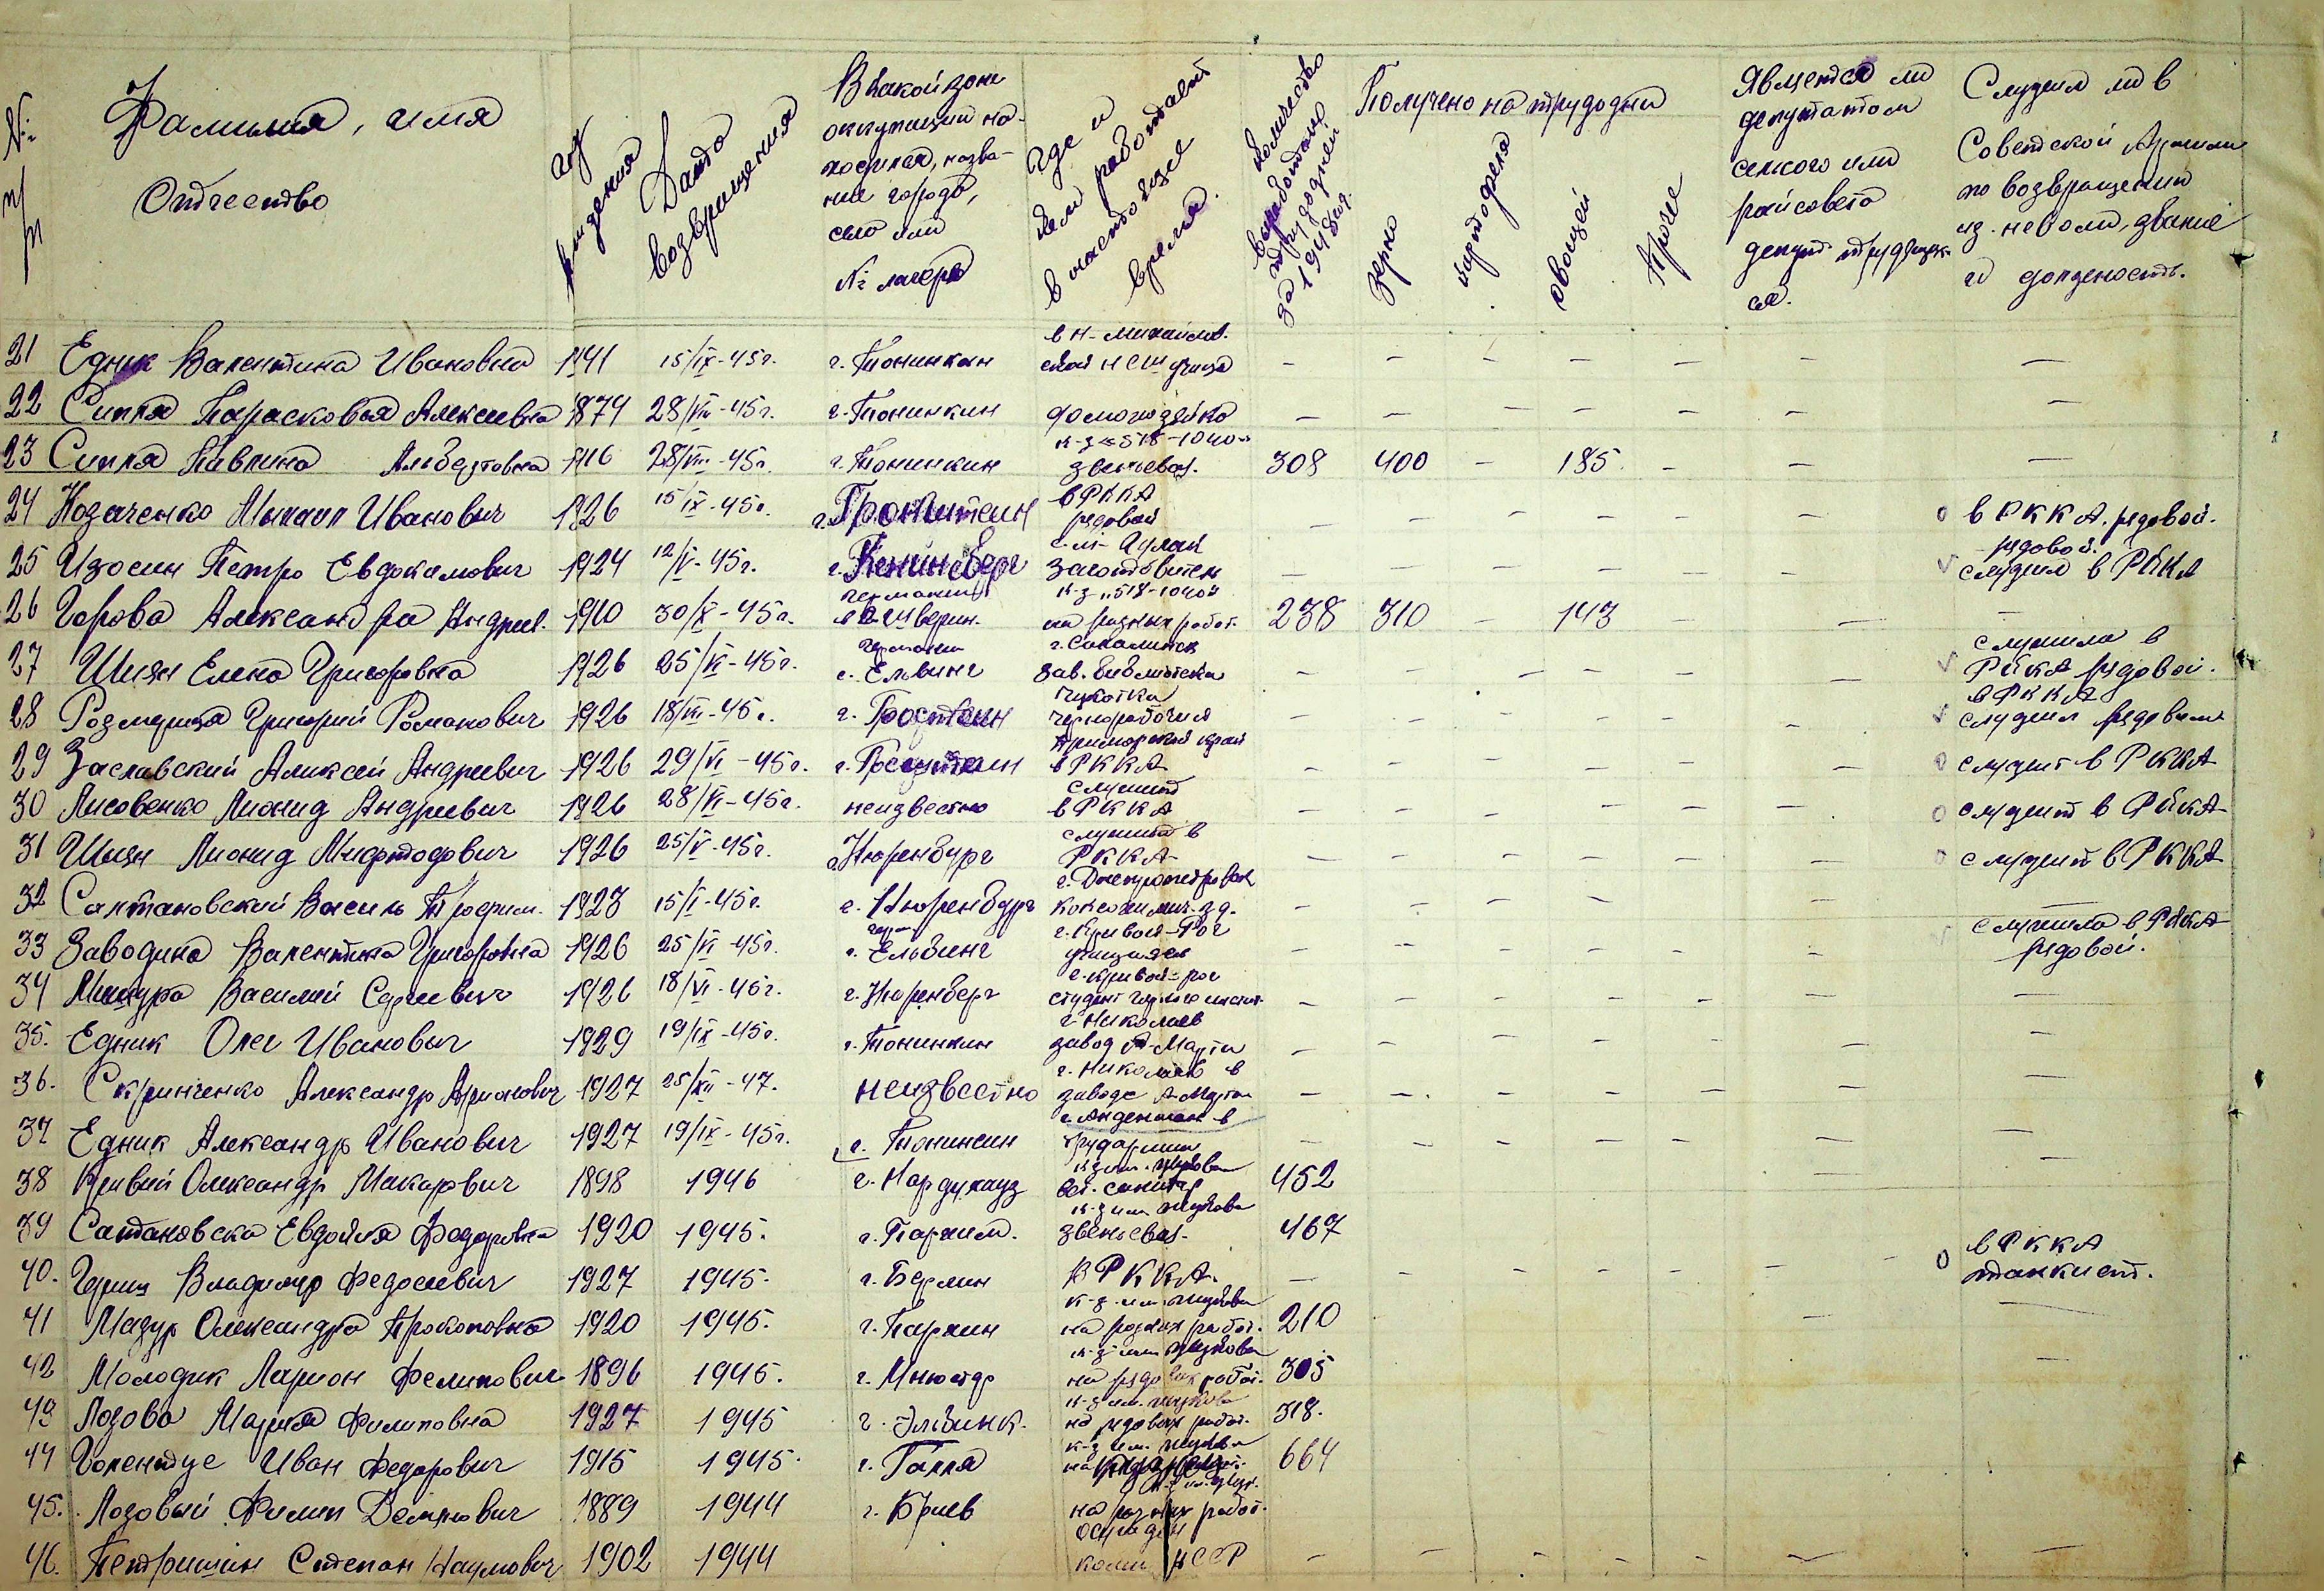 № п/п
Фамилия, имя
Отчество
год рождения
Дата возвращения
В какой зоне
оккупации на-
ходился, назва-
ние города,
село или
№ лагеря
где и
кем работает
в настоящее
время.
количество
выработаных
трудодней
за 1948 год.
Получено на трудодни
зерно
картофеля
овощей
прочее
Является ли
депутатом
селького или
райсовета
депут трудящих
ся.
Служил ли в
Советской Армии
по возвращении
из неволи, звание
и должность.
в н-михайлов.
21 Едник Валентина Ивановна 1941 15/IX-45г. г. Тонинкан ской н сш учица – – – – – – –
22 Сипля Парасковья Алексеевна 1874 28/VIII-45г. г. Тонинкин домохозяйка – – – – – – –
к-з "518-1040"
23 Сипля Павлина Альбертовна 1916 28/VIII-45г. г. Тонинкин звеньевая. 308 400 – 185. – – –
в РККА
24 Козаченко Михаил Иванович 1926 15/IX-45г. г. рядовой – – – – – – о в РККА. рядовой.
рядовой.
25 Изосин Петро Евдокимович 1924 12/V-45г. г. Кенинсберг – – – – – – v служил в РККА
германия к-з "518-1040"
26 Горова Александра Андреев. 1910 30/X-45г. Шверин. на разных работ. 238 310 – 143 – – –
германия служила в
27 Шиян Елена Григоровна 1926 25/VI-45г. г. Ельбинг зав. библиотеки – – – – – – v РККА рядовой.
чукотка в РККА
28 Розмариза Григорий Романович 1926 18/VII-45г. г. чернорабочий – – – – – – v служил рядовым
Приморский край
29 Заславский Аликсей Андреевич 1926 29/VI-45г. г. в РККА – – – – – – о служит в РККА
служит
30 Лисовенко Лионид Андреевич 1926 28/VI-45г. неизвестно в РККА – – – – – – о служит в РККА
служит в
31 Шиян Лионид Мифтодович 1926 25/V-45г. г. Нюренбург РККА – – – – – – о служит в РККА
г. Днепропетровск
32 Салтановский Василь Трофим. 1923 15/I-45г. г. Нюренбург коксохимич. з-д. – – – – – – –
г. Кривой-Рог служила в РККА
33 Заводина Валентина Григоровна 1926 25/VI-45г. г. Ельбинг – – – – – – v рядовой.
г. кривой-рог
34 Мишура Василий Сергеевич 1926 18/VI-45г. г. Нюренберг студент – – – – – – –
г. Николаев
35. Едник Олег Иванович 1929 19/IX-45г. г. Тонинкин завод А-Марти – – – – – – –
г. Николаев в
36. Скринченко Александр 1927 25/XII-47. неизвестно заводе А-Марти – – – – – – –
37 Едник Александр Иванович 1927 19/IX-45г. г. Тонинкин трудармии – – – – – – –
к-з им. жукова
38 Кривий Олександр Макарович 1898 1946 г. Нардхауз вет. санитар 452 – –
к-з им жукова
39 Сатановска Евдокия Федоровна 1920 1945. г. Пархим. звеньевая. 467
в РККА
40. Гериш Владимир Федосеевич 1927 1945. г. Берлин В РККА. – – – – – – о танкист.
к-з им. жукова
41 Мазур Олександра Прокоповна 1920 1945. г. Пархим на разных работ. 210 – –
к-з им жукова
42 Молодик Ларион Фелипович 1896 1945. г. Мюнстр на рядовых работ. 305 –
к-з им. жукова
43 Лозова Мария Филиповна 1927 1945 г. Эльбинк. на рядовых работ. 318.
к-з им. жукова
44 Голентус Иван Федорович 1915 1945. г. Галля 664
45. Лозовый Филип Демянович 1889 1944 г. Бриев на разных работ.
осужден
46. Петришин Степан Наумович 1902 1944 коми АССР – – – – – – –